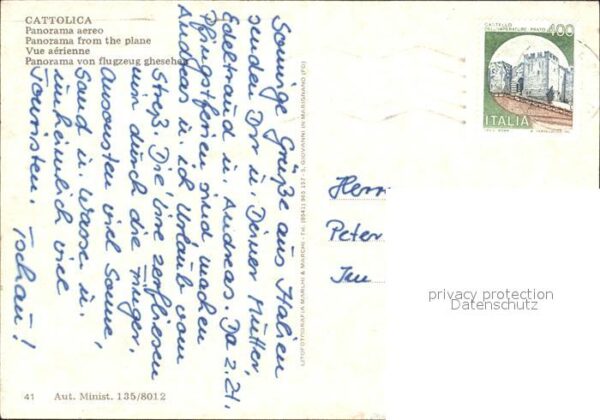 CATTOLICA
Panorama aereo
Panorama from the plane
Vue aérienne
Panorama von flugzeug ghesehen
Sonnige Grüße aus Italien
senden Dir u. Deiner Mutter,
Edeltraud u. Andreas. Da z. Zt.
Pfingstferien sind machen
Andreas u. ich Urlaub vom
Streß. Die Lire zerfliesen
mir durch die Finger.
Ansonsten viel Sonne,
Sand u. Wasser u.
unheimlich viele
Touristen. Tschau!
41 Aut. Minist. 135/8012
LITOFOTOGRAFIA MARCHI & MARCHI - Tel. (0541) 955 157 - S. GIOVANNI IN MARIGNANO (FO)
CASTELLO
DELL'IMPERATORE - PRATO
400
ITALIA
Herrn
Peter
Im
privacy protection
Datenschutz